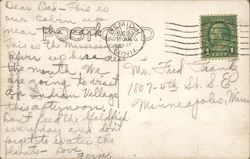 Dear Dad - This is
our cabin up
near
POST CARD
This is the Mississippi
River up here at
the mouth. We
are going to visit
an Indian Village
this afternoon.
Don't feed the Goldfish
everyday and don't
forget to water the
plants - Love
BEMIDJI
MINN.
Mr. Fred
1807-4th St. S.E.
Minneapolis, Minn.
1